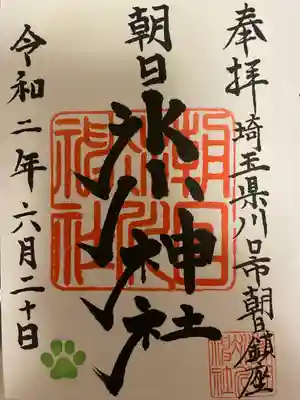 奉拝
埼玉県川口市朝日鎮座
朝日氷川神社
令和二年六月二十日
朝日
氷川
神社